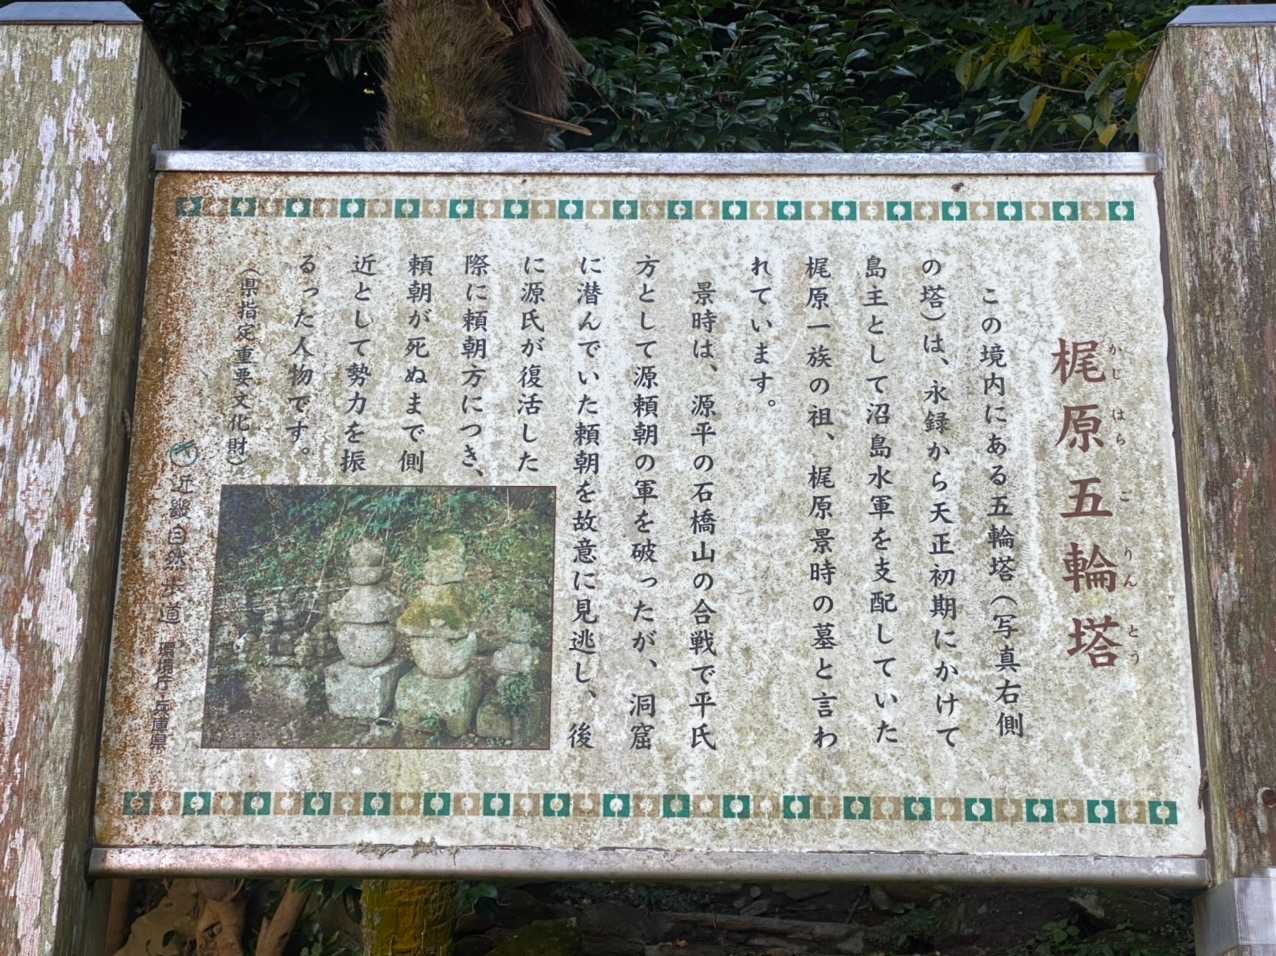 梶原五輪塔
かじはらごりんとう
この境内にある五輪塔（写真右側
の塔）は、永録から天正初期にかけて
島主として沼島水軍を支配していた
梶原一族の祖、梶原景時の墓と言わ
れています。
景時は、源平の石橋山の合戦で平氏
方として源頼朝の軍を破ったが、洞窟
に潜んでいた頼朝を故意に見逃し、後
に源氏が復活した
際に頼朝方につき、
頼朝が死ぬまで側
近として勢力を振
るった人物です。
（県指定重要文化財）
近畿自然歩道 環境庁・兵庫県